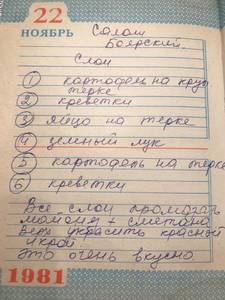 22
НОЯБРЬ
Салат
Боярский.
Слои
1 картофель на круп.
терке
2 креветки
3 яйцо на терке
4 зеленый лук
5 картофель на терке
6 креветки
Все слои промазать
майонез + сметана
верх украсить красной
икрой
Это очень вкусно
1981